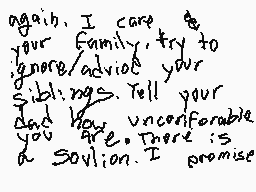 again. I care &
your family. try to
ignore/adviod your
siblings. Tell your
dad how unconforable
you are. There is
a sovlion. I promise